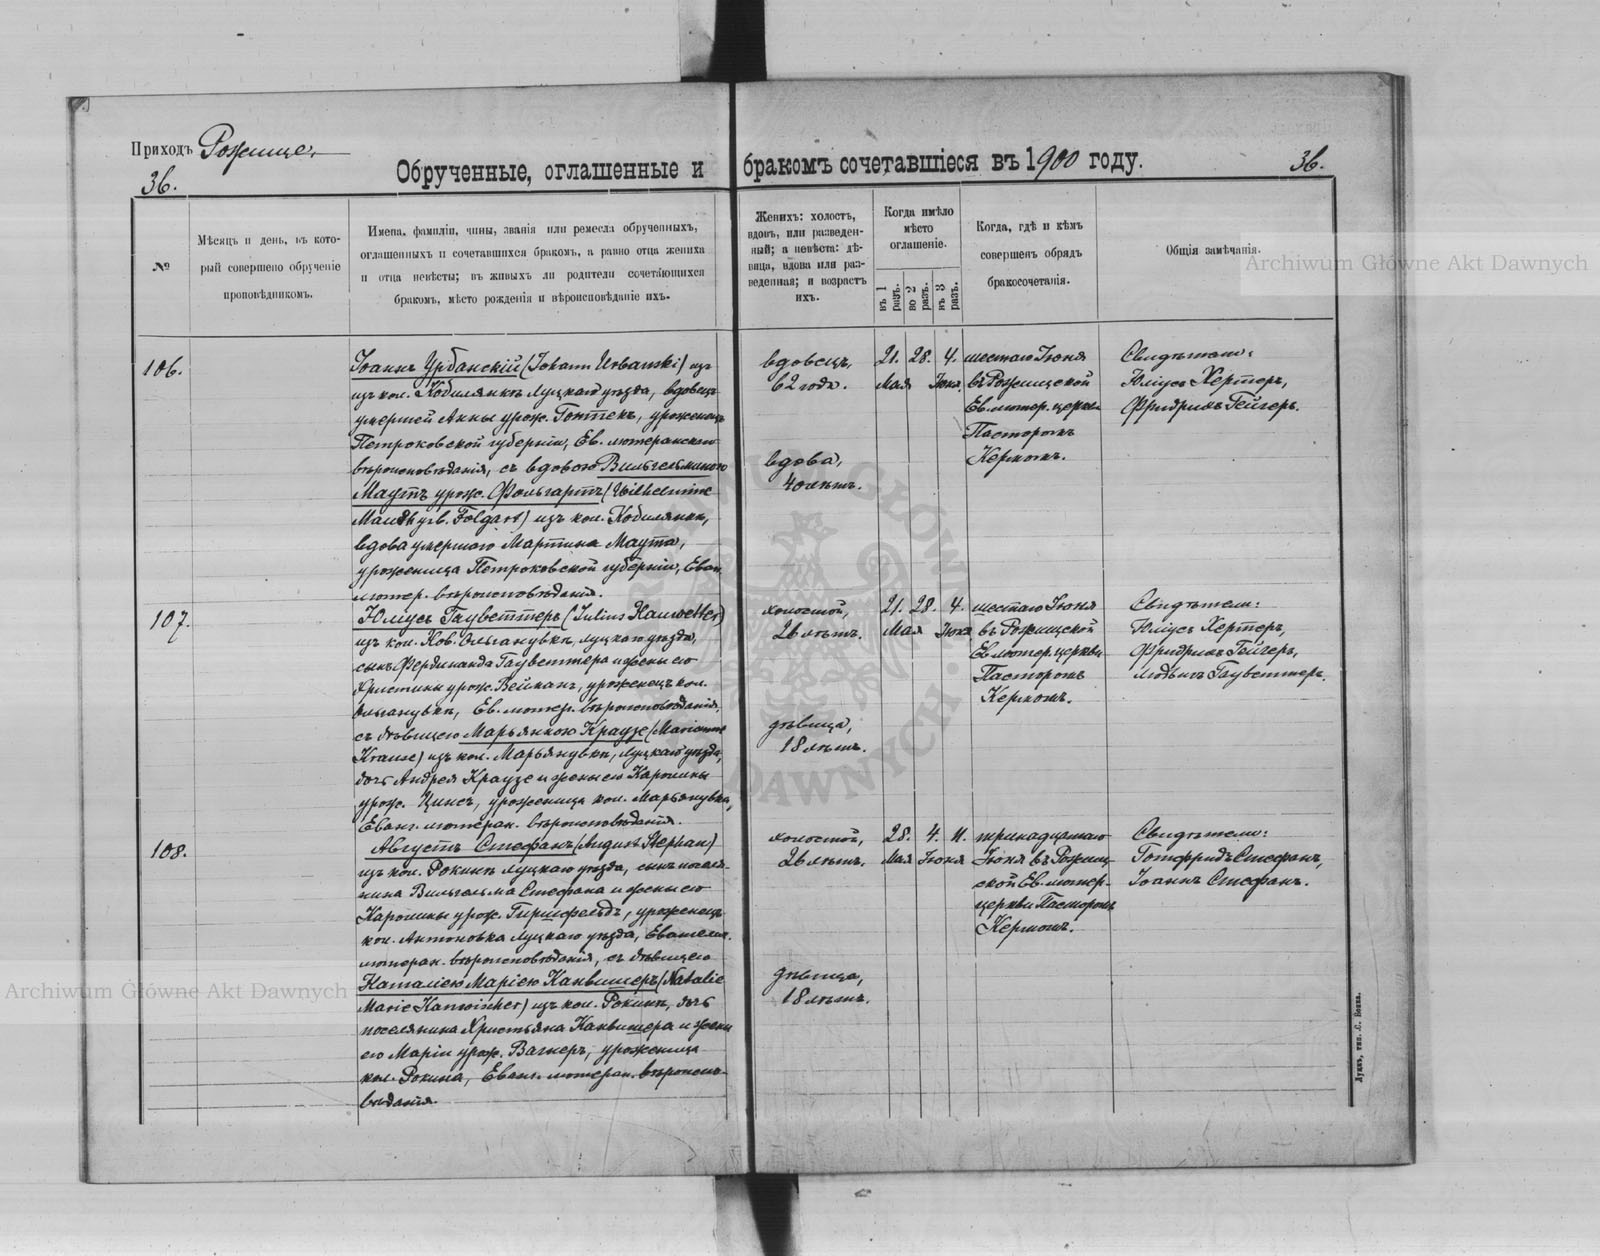 Приходъ Рожище.
36.
Обрученные, оглашенные и бракомъ сочетавшіеся въ 1900 году.
36.
№
Мѣсяцъ и день, въ кото-
рый совершено обрученіе
проповѣдникомъ.
Имена, фамиліи, чины, званія или ремесла обрученныхъ,
оглашенныхъ и сочетавшихся бракомъ, а равно отца жениха
и отца невѣсты; въ живыхъ ли родители сочетающихся
бракомъ, мѣсто рожденія и вѣроисповѣданіе ихъ.
Женихъ: холостъ,
вдовъ, или разведен-
ный; а невѣста: дѣ-
вица, вдова или раз-
веденная; и возрастъ
ихъ.
Когда имѣло
мѣсто
оглашеніе.
въ 1
разъ.
во 2
разъ.
въ 3
разъ.
Когда, гдѣ и кѣмъ
совершенъ обрядъ
бракосочетанія.
Общія замѣчанія.
Archiwum Główne Akt Dawnych
106.
Іоаннъ Урбанскій (Johann Urbanski) изъ
изъ кол. Кобилянкѣ Луцкаго уѣзда, вдовецъ
умершей Анны урож. Гонтекъ, уроженецъ
Петроковской губерніи, Ев. лютеранскаго
вѣроисповѣданія, съ вдовою Вильгельминою
Маутъ урож. Фольгартъ (Wilhelmine
Mauth geb. Folgart) изъ кол. Кобилянкѣ,
вдова умершаго Мартина Маута,
уроженица Петроковской губерніи, Еван.
лютер. вѣроисповѣданія.
вдовецъ,
62 года.
вдова,
40 лѣтъ.
21. 28. 4.
Мая Іюня.
шестаго Іюня
въ Рожищской
Ев. лютер. церкви
Пасторомъ
Кермомъ.
Свидѣтели:
Юліусъ Хертеръ,
Фридрихъ Гейгеръ.
107.
Юліусъ Гауветтеръ (Julius Hauwetter)
изъ кол. Нов. Ольганувкѣ, Луцкаго уѣзда,
сынъ Фердинанда Гауветтера и жены его
Христины урож. Вейманъ, уроженецъ кол.
Ольганувкѣ, Ев. лютер. вѣроисповѣданія,
съ дѣвицею Марьянною Краузе (Marianne
Krause) изъ кол. Марьянувкѣ, Луцкаго уѣзда,
дочь Андрея Краузе и жены его Каролины
урож. Цинсъ, уроженица кол. Марьянувка,
Еванг. лютеран. вѣроисповѣданія.
холостой,
26 лѣтъ.
дѣвица,
18 лѣтъ.
21. 28. 4.
Мая Іюня
шестаго Іюня
въ Рожищской
Ев. лютер. церкви
Пасторомъ
Кермомъ.
Свидѣтели:
Юліусъ Хертеръ,
Фридрихъ Гейгеръ,
Людвигъ Гауветтеръ.
108.
Августъ Стефанъ (August Stephan)
изъ кол. Рокинѣ Луцкаго уѣзда, сынъ поселя-
нина Вильгельма Стефана и жены его
Каролины урож. Гиршфельдъ, уроженецъ
кол. Антоновка Луцкаго уѣзда, Евангел.
лютеран. вѣроисповѣданія, съ дѣвицею
Наталіею Маріею Канвишеръ (Natalie
Marie Kanwischer) изъ кол. Рокинѣ, дочь
поселянина Христьяна Канвишера и жены
его Маріи урож. Вагнеръ, уроженица
кол. Рокина, Еванг. лютеран. вѣроиспо-
вѣданія.
холостой,
26 лѣтъ.
дѣвица,
18 лѣтъ.
28. 4. 11.
Мая Іюня
тринадцатаго
Іюня въ Рожищ-
ской Ев. лютер.
церкви Пасторомъ
Кермомъ.
Свидѣтели:
Готфридъ Стефанъ,
Іоаннъ Стефанъ.
Archiwum Główne Akt Dawnych
GŁÓWNE
DAWNYCH
Луцкъ, тип. С. Бокса.